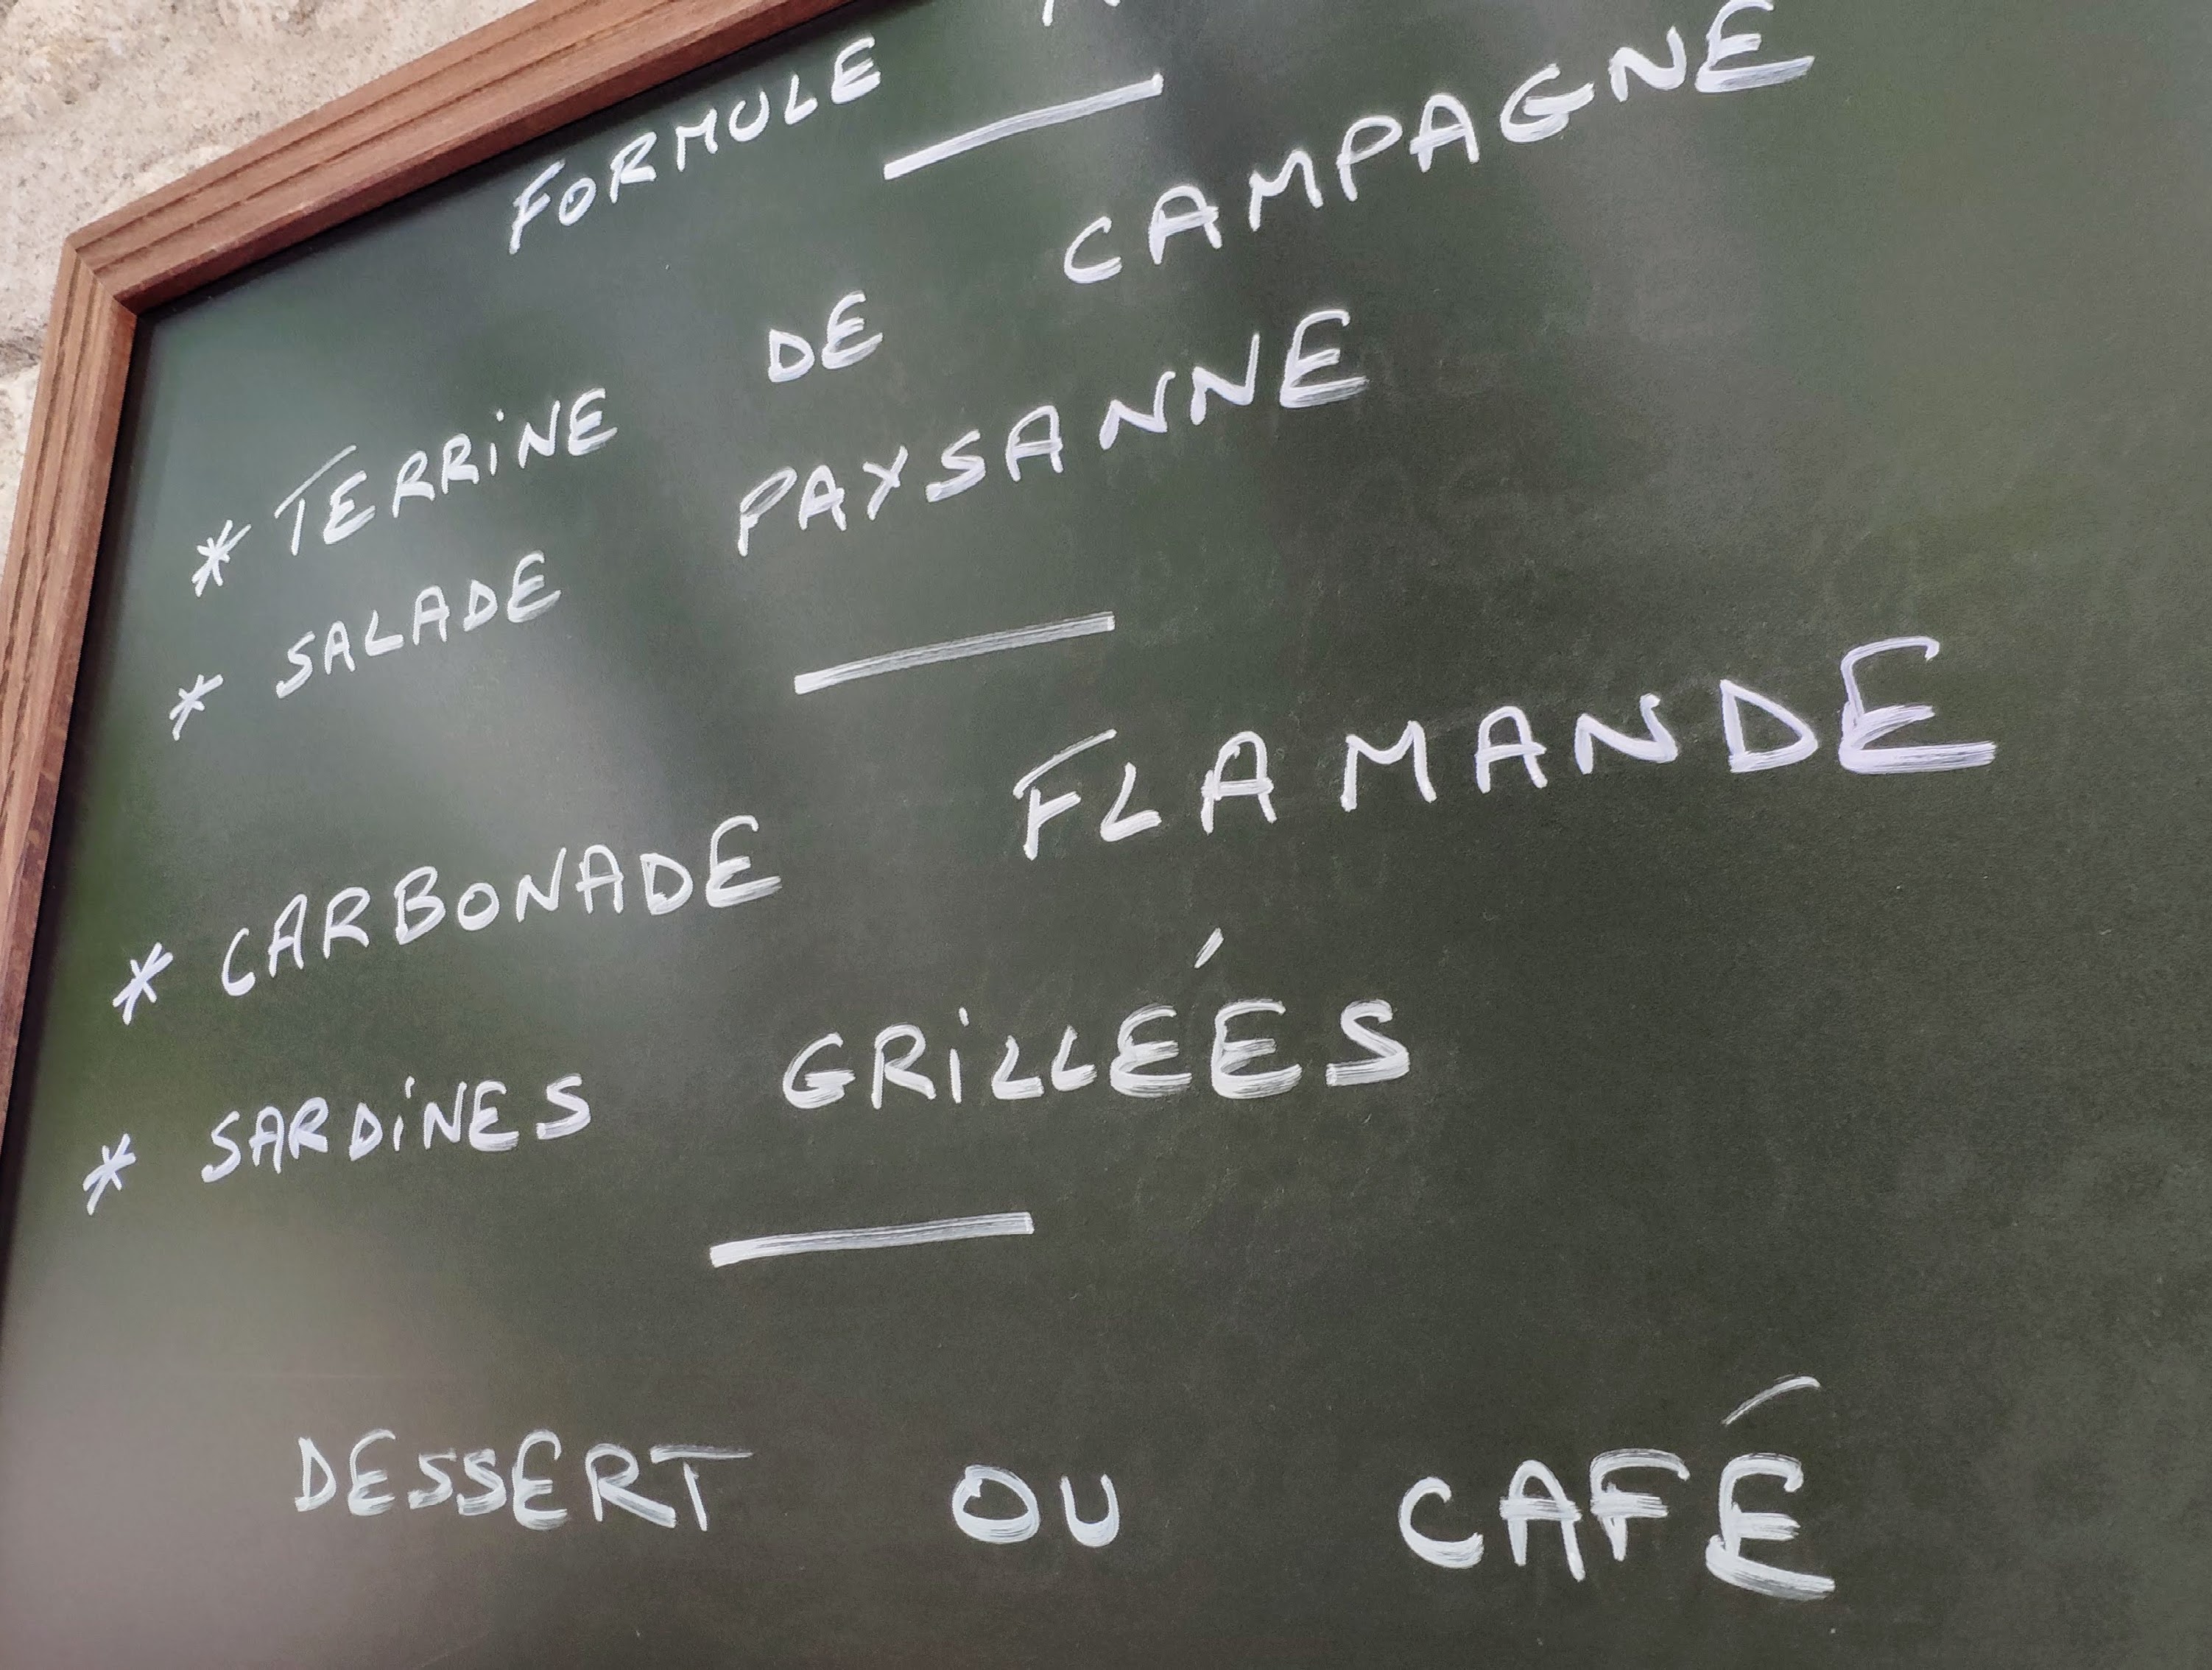 FORMULE
* TERRINE DE CAMPAGNE
* SALADE PAYSANNE
* CARBONADE FLAMANDE
* SARDINES GRILLEÉS
DESSERT OU CAFÉ